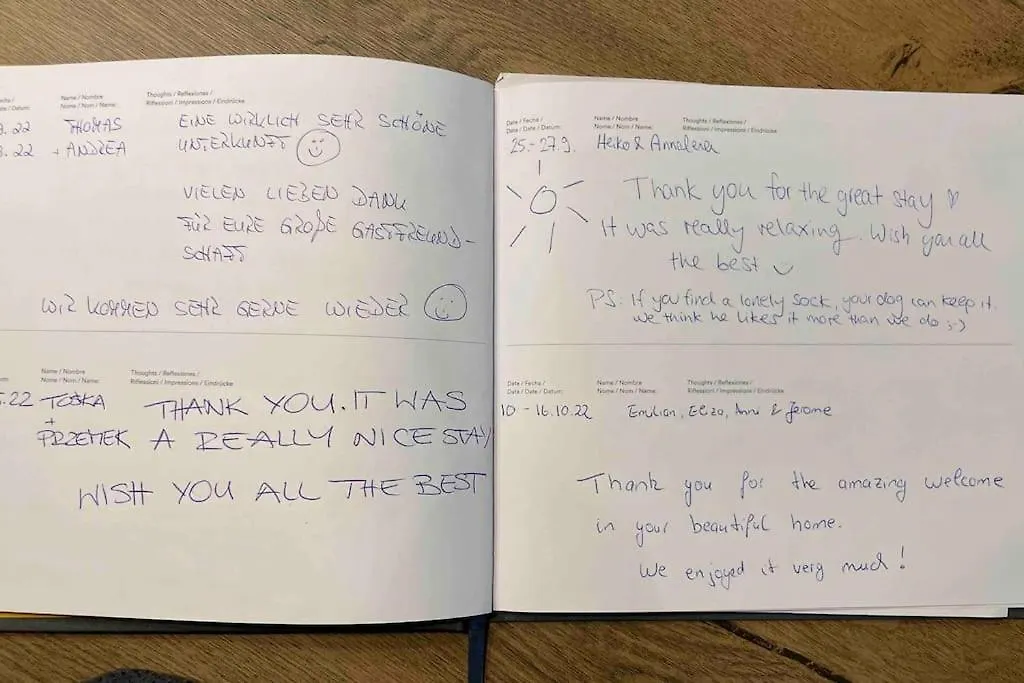 Name / Nombre
Name / Nom / Name:
Thoughts / Reflexiones /
Riflessioni / Impressions / Eindrücke
.22 THOMAS
.22 + ANDREA
EINE WIRKLICH SEHR SCHÖNE
UNTERKUNFT
VIELEN LIEBEN DANK
FÜR EURE GROßE GASTFREUND-
SCHAFT
WIR KOMMEN SEHR GERNE WIEDER
Name / Nombre
Name / Nom / Name:
Thoughts / Reflexiones /
Riflessioni / Impressions / Eindrücke
.22 TOŚKA
+
PRZEMEK
THANK YOU. IT WAS
A REALLY NICE STAY
WISH YOU ALL THE BEST
Date / Fecha /
Date / Date / Datum:
Name / Nombre
Name / Nom / Name:
Thoughts / Reflexiones /
Riflessioni / Impressions / Eindrücke
25.-27.9. Heiko & Annalena
Thank you for the great stay ♡
It was really relaxing. Wish you all
the best
PS: If you find a lonely sock, your dog can keep it.
We think he likes it more than we do ;-)
Date / Fecha /
Date / Date / Datum:
Name / Nombre
Name / Nom / Name:
Thoughts / Reflexiones /
Riflessioni / Impressions / Eindrücke
10 - 16.10.22 Emilian, & Jerome
Thank you for the amazing welcome
in your beautiful home.
We enjoyed it very much!